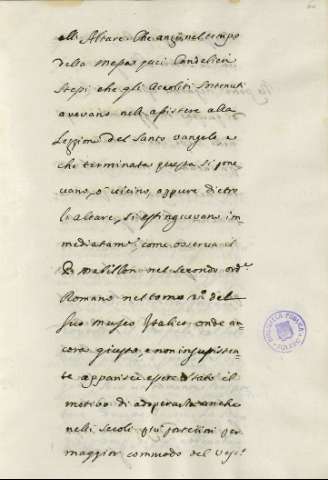 all'Altare. Che anzi nel tempo
della Messa quei Candelieri
stessi che gli Accoliti
avevano nell'assistere alla
Lezzione del Santo Vangelo e
che terminata questa si pone
vano, o vicino, oppure dietro
l'altare, si estinguevano im
mediatam.e, come osserva il
P. Mabillon nel secondo ord.e
Romano nel tomo del
suo museo Italico, onde an
cora giusto, e non insussisten
te apparisce essere stato il
motivo di adoperarla anche
nelli secoli più per
maggior commodo del
BIBLIOTECA PUBLICA